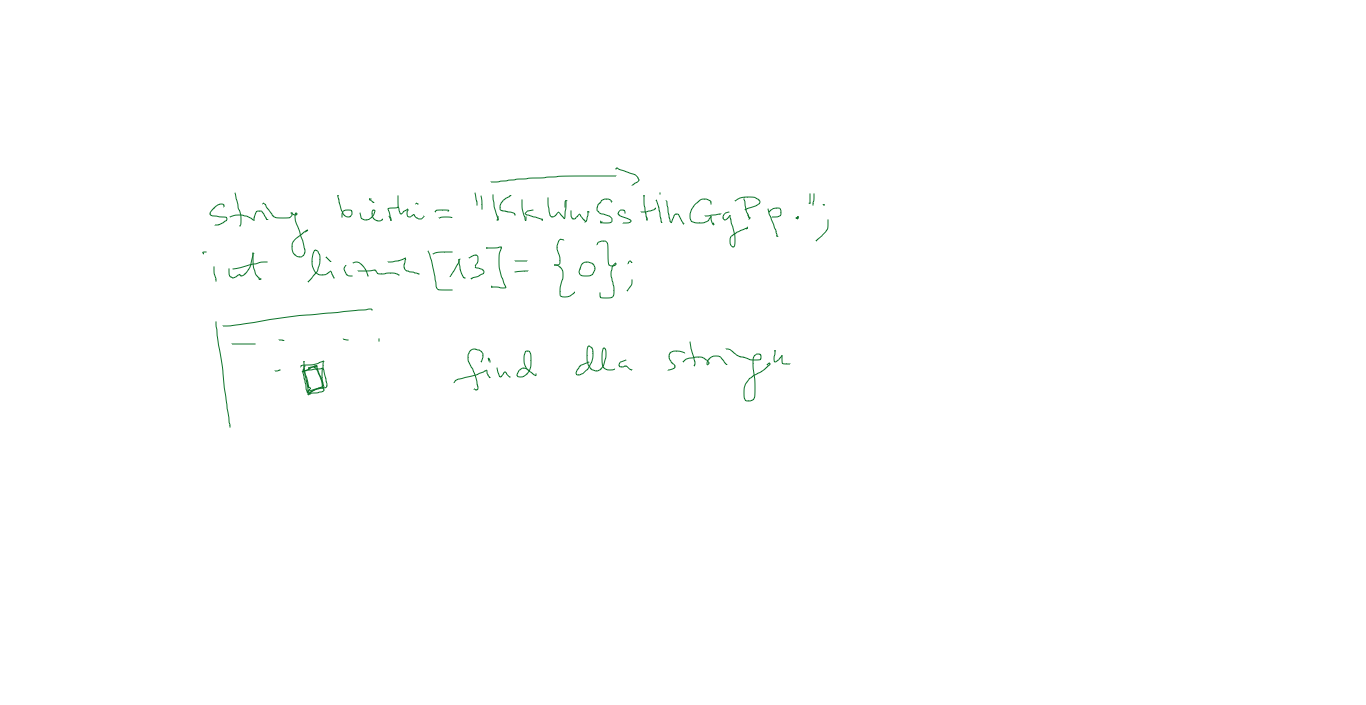 string bierki = "KkWwSsHhGgPp.";
int licznik[13] = {0};
find dla stringu